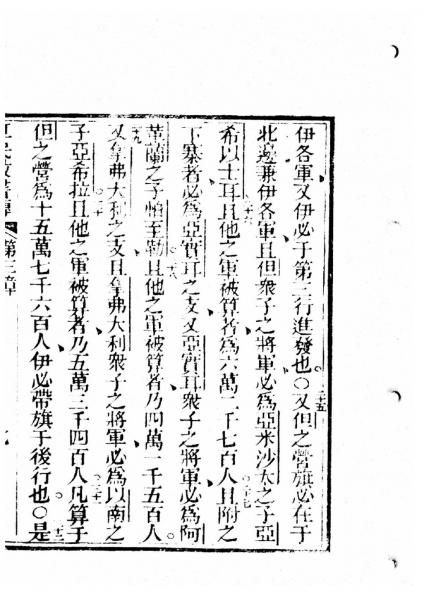 伊各軍又伊必于第三行進發也○又但之營旗必在于
二十五
北邊兼伊各軍且但衆子之將軍必爲亞米沙大之子亞
二十六
希以士耳且他之軍被算者爲六萬二千七百人且附之
二十七
下寨者必爲亞實耳之支又亞實耳衆子之將軍必爲阿
二十八
革蘭之子怕至勒且他之軍被算者乃四萬一千五百人
二十九
又拿弗大利之支且拿弗大利衆子之將軍必爲以南之
三十
子亞希拉且他之軍被算者乃五萬三千四百人凡算于
三十一
但之營爲十五萬七千六百人伊必帶旗于後行也○是
三十二
第三章